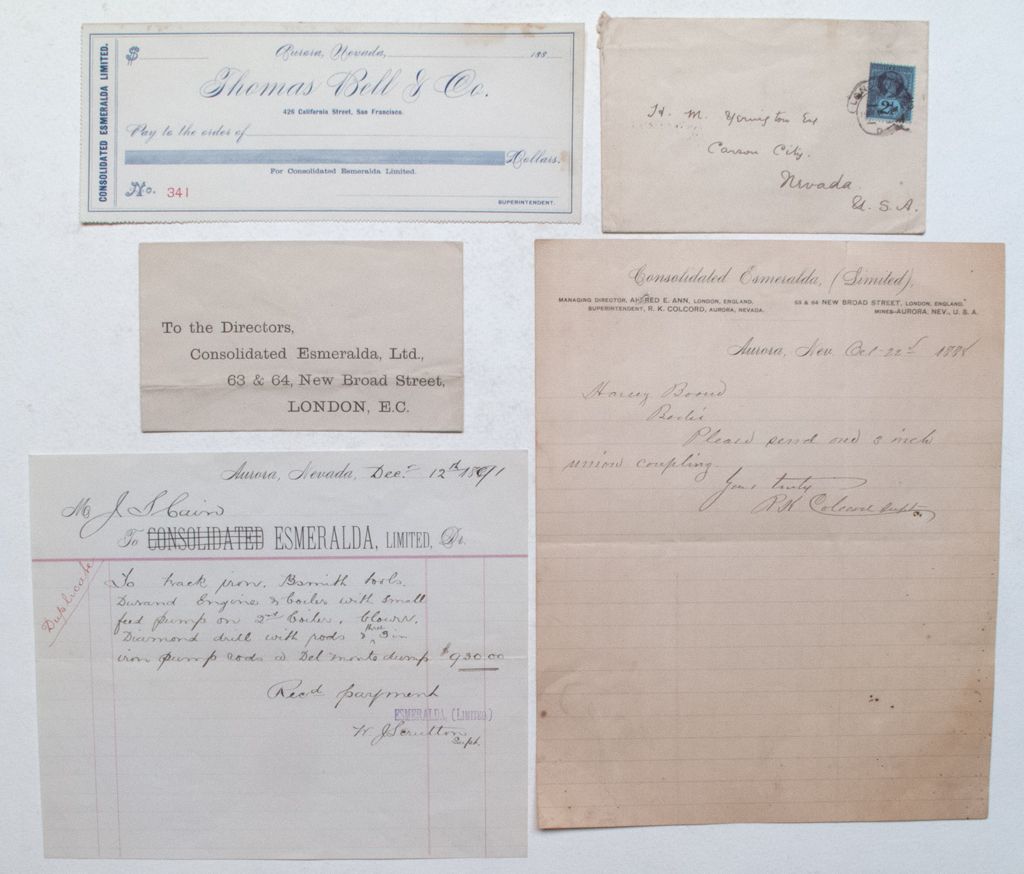 CONSOLIDATED ESMERALDA LIMITED.
$
Aurora, Nevada, 188
Thomas Bell & Co.
426 California Street, San Francisco.
Pay to the order of
Dollars.
For Consolidated Esmeralda Limited.
No. 341
SUPERINTENDENT.
H. M. Yerington Esq
Carson City.
Nevada
U. S. A.
2½
To the Directors,
Consolidated Esmeralda, Ltd.,
63 & 64, New Broad Street,
LONDON, E.C.
Consolidated Esmeralda, (Limited),
MANAGING DIRECTOR, ALFRED E. ANN, LONDON, ENGLAND.
SUPERINTENDENT, R. K. COLCORD, AURORA, NEVADA.
63 & 64 NEW BROAD STREET, LONDON, ENGLAND.
MINES-AURORA, NEV., U. S. A.
Aurora, Nev. Oct-22d 1888
Harvey Boone
Bodie
Please send one 3 inch
union coupling.
Yours truly
R K Colcord Supt.
Aurora, Nevada, Dec. 12th 1891
M J S Cain
To CONSOLIDATED ESMERALDA, LIMITED, Dr.
Duplicate
To track iron. Bsmith tools.
Durand Engine & boiler with small
feed pump on 2nd boiler, blower.
Diamond drill with rods & three 3 in
iron pump rods @ Del monte dump $930.00
Recd payment
ESMERALDA (LIMITED)
W J Scrutton
Supt.